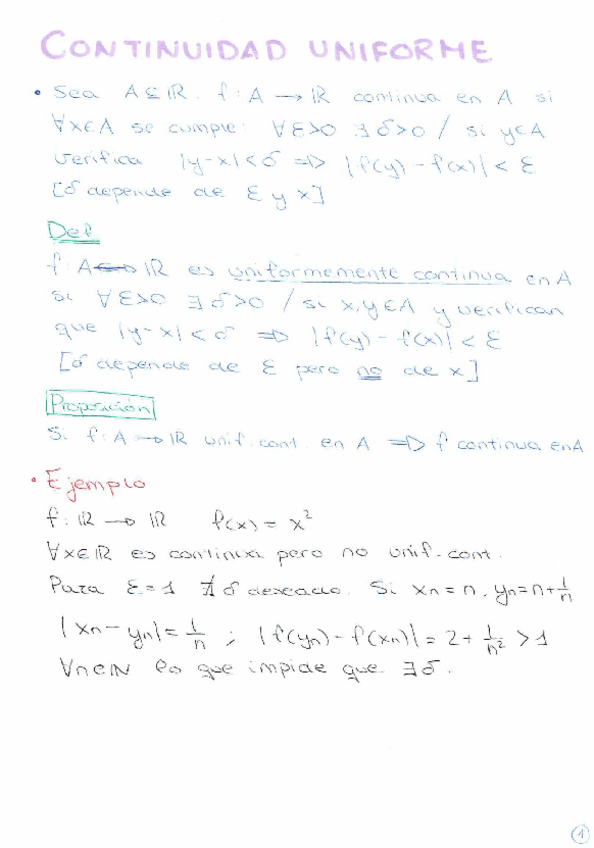 CONTINUIDAD UNIFORME
• Sea A⊆ℝ. f: A → ℝ continua en A si
∀x∈A se cumple: ∀ε>0 ∃δ>0 / si y∈A
verifica |y-x|<δ ⇒ |f(y)-f(x)|<ε
[δ depende de ε y x]
Def
f: A → ℝ es uniformemente continua en A
si ∀ε>0 ∃δ>0 / si x,y∈A y verifican
que |y-x|<δ ⇒ |f(y)-f(x)|<ε
[δ depende de ε pero no de x]
Proposición
Si f: A → ℝ unif. cont. en A ⇒ f continua en A
• Ejemplo
f: ℝ → ℝ f(x) = x²
∀x∈ℝ es continua pero no unif. cont.
Para ε=1 ∄ δ deseado. Si xn = n, yn = n+1/n
|xn - yn| = 1/n ; |f(yn) - f(xn)| = 2 + 1/n² > 1
∀n∈ℕ lo que impide que ∃δ.
1